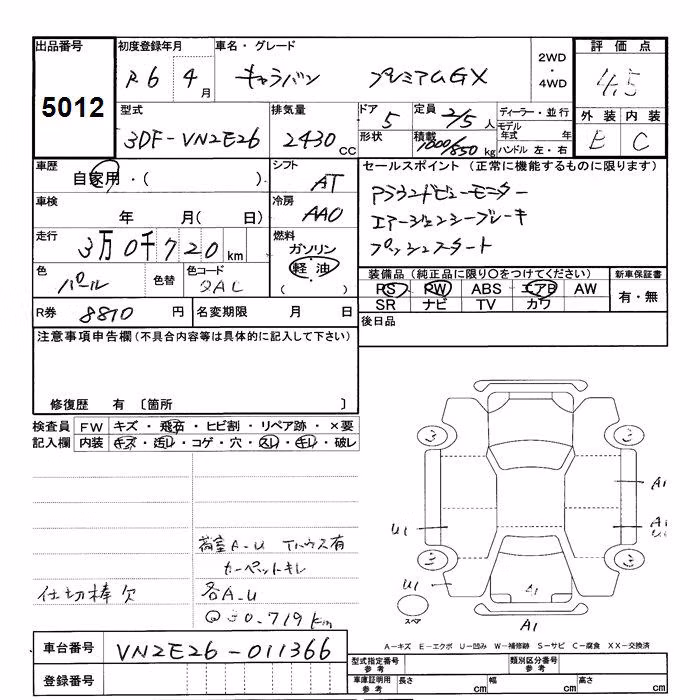 出品番号 初度登録年月 車名・グレード 2WD・4WD 評価点
5012 R6 4月 キャラバン プレミアムGX 4.5
型式 排気量 ドア 5 定員 2/5人 ディーラー・並行 外装 内装
3DF-VN2E26 2430cc 形状 積載 1000/850kg モデル年式 年 E C
ハンドル 左・右
車歴 自家用・( ) シフト AT セールスポイント(正常に機能するものに限ります)
車検 年 月( 日) 冷房 AAC アラウンドビューモニター
エマージェンシーブレーキ
走行 3万0千720km 燃料 ガソリン プッシュスタート
色 パール 色替 色コード QAC 軽油 ( )
装備品(純正品に限り〇をつけてください) 新車保証書
PS PW ABS エアB AW 有・無
SR ナビ TV カワ
R券 8810円 名変期限 月 日 後日品
注意事項申告欄(不具合内容等は具体的に記入して下さい)
修復歴 有 〔箇所 〕
検査員 FW キズ・飛石・ヒビ割・リペア跡・×要
記入欄 内装 キズ・汚レ・コゲ・穴・スレ・キレ・破レ
3 3
A1
U1 A1
荷室A-U
カーペットキレ
3 3
U1 A1
仕切棒欠 各A-U
スペア A1
A-キズ E-エクボ U-凹み W-補修跡 S-サビ C-腐食 XX-交換済
車台番号 VN2E26-011366
登録番号
型式指定番号 参考 類別区分番号 参考
車庫証明用 参考 長さ cm 幅 cm 高さ cm